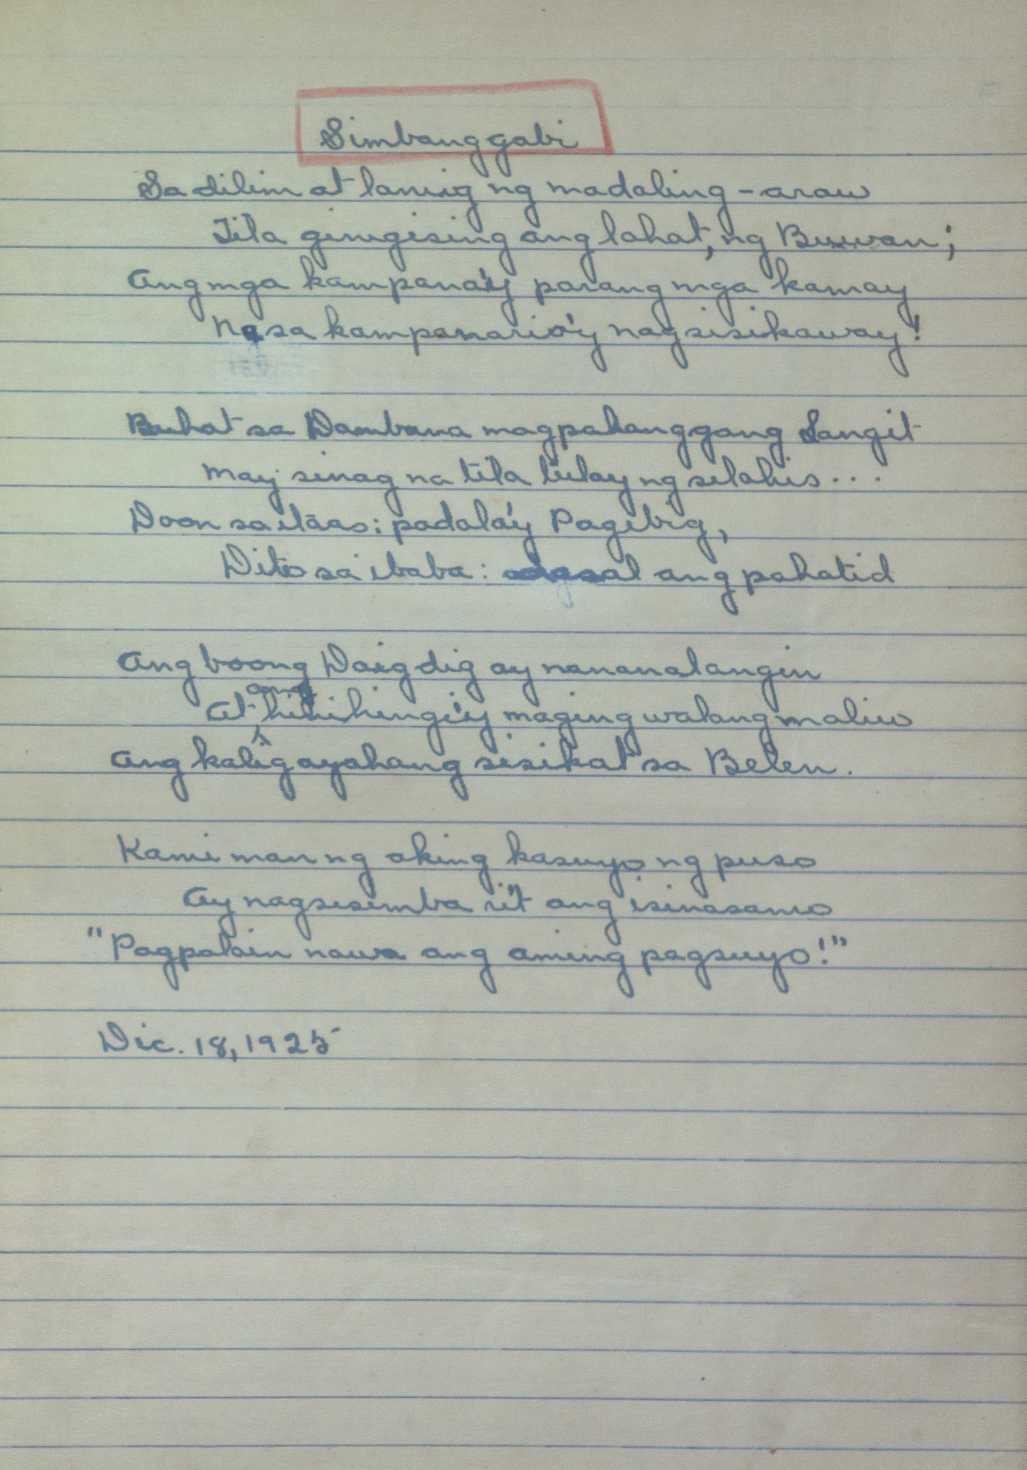 Simbanggabi
Sa dilim at lamig ng madaling-araw
Tila ginigising ang lahat, ng Buwan;
Ang mga kampana'y parang mga kamay
Na sa kampanario'y nagsisikaway!
Buhat sa Dambana magpahanggang Langit
May sinag na tila tulay ng silahis...
Doon sa itaas: padala'y Pagibig,
Dito sa ibaba: dasal ang pahatid
Ang boong Daigdig ay nananalangin
At ang hinihingi'y maging walang maliw
Ang kaligayahang sisikat sa Belen.
Kami man ng aking kasuyo ng puso
Ay nagsisimba rit ang isinasamo
"Pagpalain nawa ang aming pagsuyo!"
Dic. 18, 1925